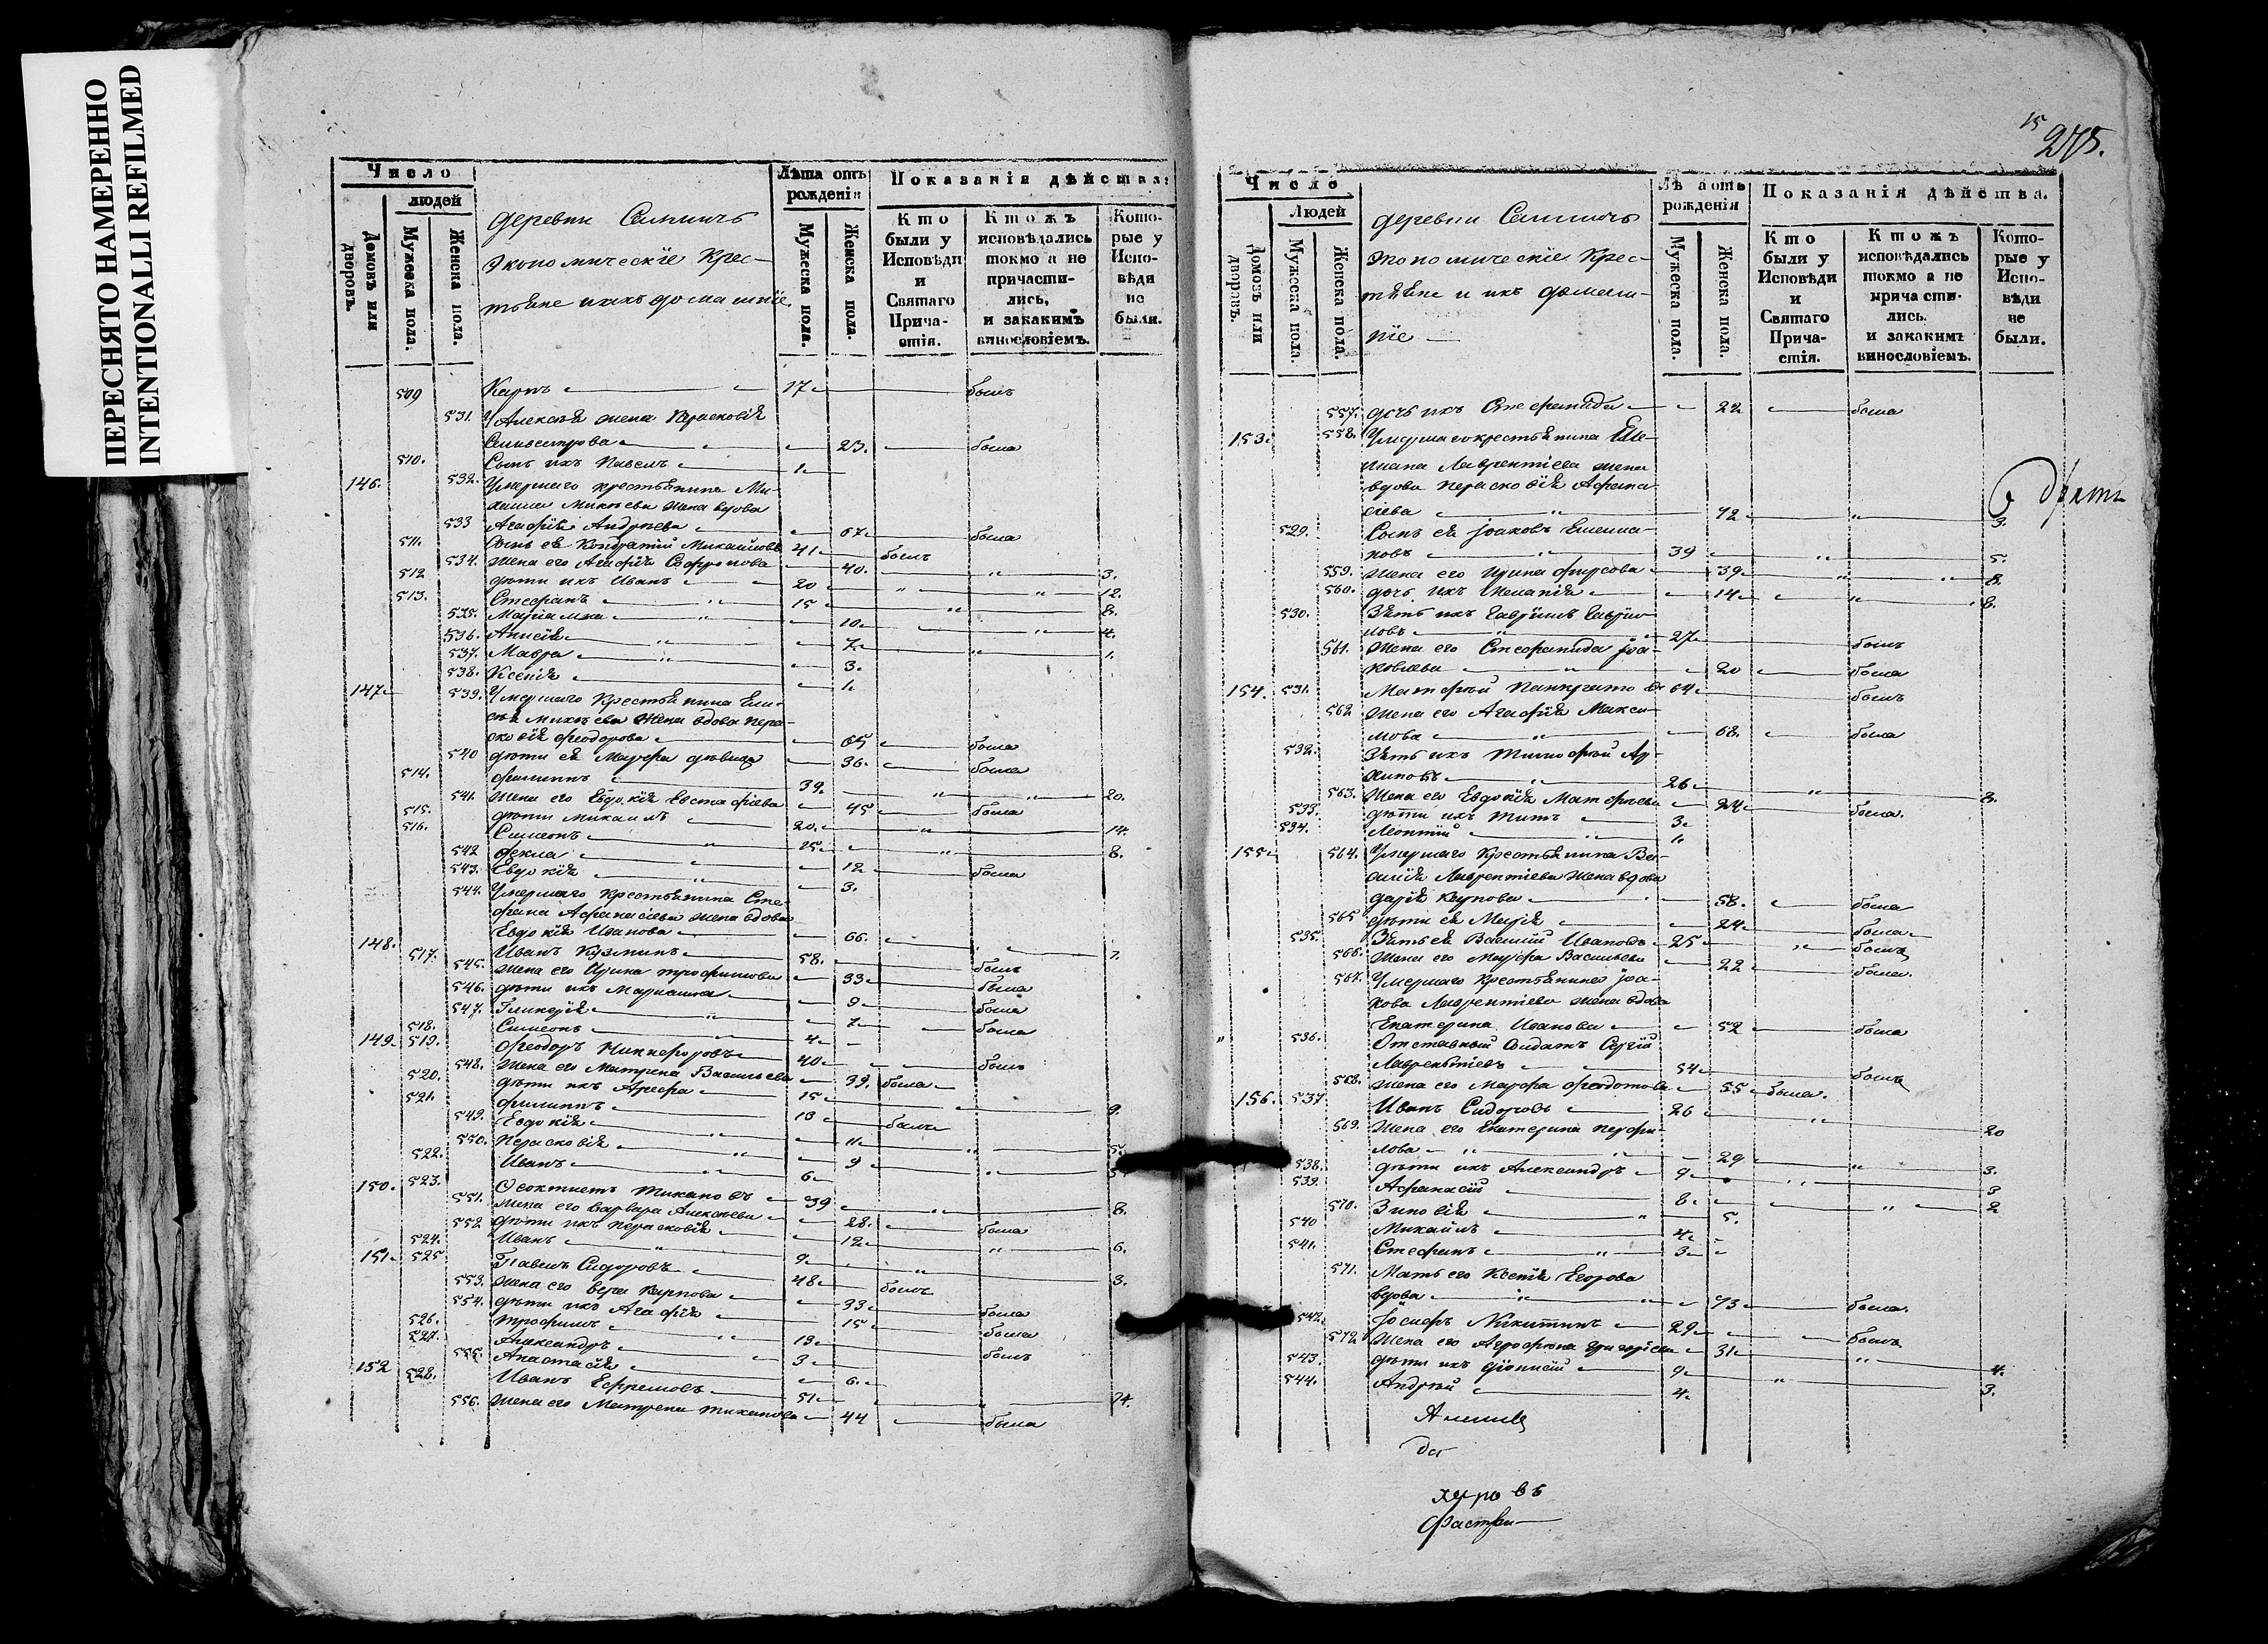 ПЕРЕСНЯТО НАМЕРЕННО
INTENTIONALLI REFILMED
Число
людей
Домовъ или дворовъ.
Мужеска пола.
Женска пола.
деревни
Экономическіе Крес-
тьяне и ихъ домашніе
Лѣта отъ рожденія
Мужеска пола.
Женска пола.
Показанія дѣйства:
Кто были у Исповѣди и Святаго Причастія.
Ктожъ исповѣдались токмо а не причастились, и закакимъ винословіемъ.
Которые у Исповѣди не были.
509 Карпъ 17 былъ
531. У Алексѣя жена Парасковія
Селивестрова 23. была
510. Сынъ ихъ Павелъ 1
146. 532. Умершаго крестьянина Ми-
хаила Михѣева жена вдова
533 Агафія Андреева 67 была
511. Сынъ ея Кондратій Михайловъ 41 былъ
534. Жена его Агафія Софронова 40. 3.
512 дѣти ихъ Иванъ 20 12.
513. Стефанъ 15 8.
535. Маріамна 10 4.
536. Анисія 7 1.
537. Мавра 3.
538. Ксенія 1
147 539. Умершаго Крестьянина Ели-
сѣя Михѣева жена вдова Пара-
сковія Феодорова 65 была
540 дѣти ея Марфа дѣвица 36. была
514. Филиппъ 39. 20.
541. Жена его Евдокія Евстафіева 45 была
515. дѣти Михаилъ 20. 14.
516. Симеонъ 15 8.
542 Фекла 12 была
543. Евдокія 3.
544. Умершаго Крестьянина Сте-
фана Афанасіева жена вдова
Евдокія Иванова 66. 7.
148. 517. Иванъ Кузминъ 58. былъ
545. Жена его Ирина Трофимова 33 была
546. дѣти ихъ Маріамна 9 была
547. Гликерія 7 была
518. Симеонъ 4
149 519. Феодоръ Никифоровъ 40 былъ
548. Жена его Матрена Васильева 39. была
520. дѣти ихъ Арефа 15 9.
521. Филиппъ 13 былъ
549. Евдокія 11 5.
550. Парасковія 9 5.
522. Иванъ 6
150. 523. Феоктистъ Тихановъ 39 8.
551. Жена его Варвара Алексѣева 28. была
552 дѣти ихъ Парасковія 12 6.
524. Иванъ 9
151 525 Павелъ Сидоровъ 48 былъ 3.
553. Жена его Вера Карпова 33 была
554. дѣти ихъ Агафія 15 была
526. Трофимъ 13 былъ
527. Александръ 3
555. Анастасія 6.
152 528. Иванъ Ефремовъ 51 14.
556. Жена его Матрена Тиханова 44 была
15
275.
Число
Людей
Домовъ или дворовъ.
Мужеска пола.
Женска пола.
деревни
Экономическіе Крес-
тьяне и ихъ домаш-
ніе
Лѣ а отъ рожденія
Мужеска пола.
Женска пола.
Показанія дѣйства.
Кто были у Исповѣди и Святаго Причастія.
Ктожъ исповѣдались токмо а не причастились. и закакимъ винословіемъ.
Которые у Исповѣди не были.
557. дочь ихъ Стефанида 22 была
153. 558. Умершаго крестьянина Еме-
льяна Лаврентіева жена
вдова Парасковія Афана-
сіева 72 3.
529. Сынъ ея Іоаковъ Емелья-
новъ 39 5.
559. Жена его Ирина Фирсова 39 8.
560. дочь ихъ Меланія 14 8.
530. Зять ихъ Гавріилъ Гаврію-
ловъ 27 былъ
561. Жена его Стефанида Іоа-
ковлева 20 была
154. 531. Матфѣй Панкратовъ 64 былъ
562 Жена его Агафія Макси-
мова 68. была
532. Зять ихъ Тимофѣй Ар-
хиповъ 26 8.
563. Жена его Евдокія Матфѣева 24 была.
533. дѣти ихъ Титъ 3
534. Леонтій 1.
155 564. Умершаго Крестьянина Ва-
силія Лаврентіева жена вдова
Дарія Карпова 58. была
565 дѣти ея Марія 24 была
535. Зять ея Василій Ивановъ 25 былъ
566. Жена его Марфа Васильева 22 была.
567. Умершаго Крестьянина Іоа-
кова Лаврентіева жена вдова
Екатерина Иванова 52 была
536. Отставный Солдатъ Сергій
Лаврентіевъ 54 былъ
568. Жена его Марфа Феодотова 55 была.
156. 537 Иванъ Сидоровъ 26 20
569. Жена его Екатерина Перфи-
лова 29 3.
538. дѣти ихъ Александръ 9 3
539. Афанасій 8. 2
570. Зиновія 5.
540 Михаилъ 4.
541. Стефанъ 3
571. Мать его Ксенія Егорова
вдова 73 была.
542. Іосифъ Никитинъ 29 былъ
572 Жена его Агрофена Григорьева 31 4.
543. дѣти ихъ Діонисій 9 3.
544. Андрей 4.